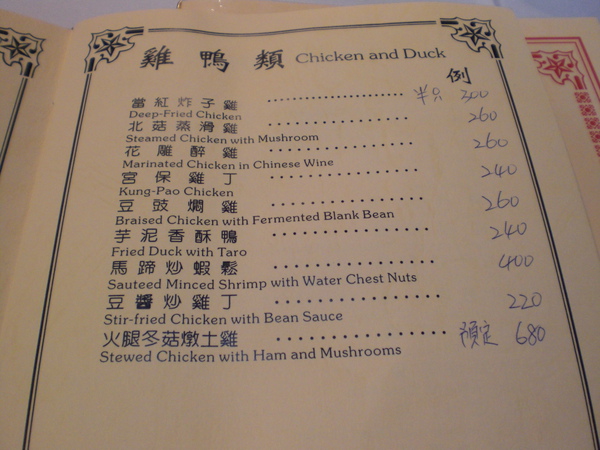 雞鴨類 Chicken and Duck
例
當紅炸子雞 半只 300
Deep-Fried Chicken
北菇蒸滑雞 260
Steamed Chicken with Mushroom
花雕醉雞 260
Marinated Chicken in Chinese Wine
宮保雞丁 240
Kung-Pao Chicken
豆豉燜雞 260
Braised Chicken with Fermented Blank Bean
芋泥香酥鴨 240
Fried Duck with Taro
馬蹄炒蝦鬆 400
Sauteed Minced Shrimp with Water Chest Nuts
豆醬炒雞丁 220
Stir-fried Chicken with Bean Sauce
火腿冬菇燉土雞 預定 680
Stewed Chicken with Ham and Mushrooms